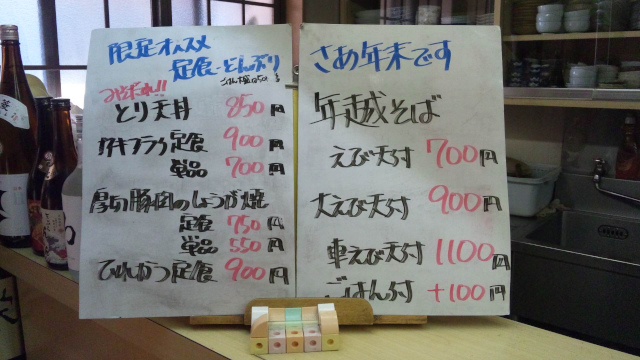 限定オススメ
定食・どんぶり
ごはん大盛
みぞれ!!
とり天丼 850円
カキフライ定食 900円
単品 700円
厚切豚肉のしょうが焼
定食 750円
単品 550円
ひれかつ定食 900円
さあ年末です
年越そば
えび天付 700円
大えび天付 900円
車えび天付 1100円
ごはん付 +100円